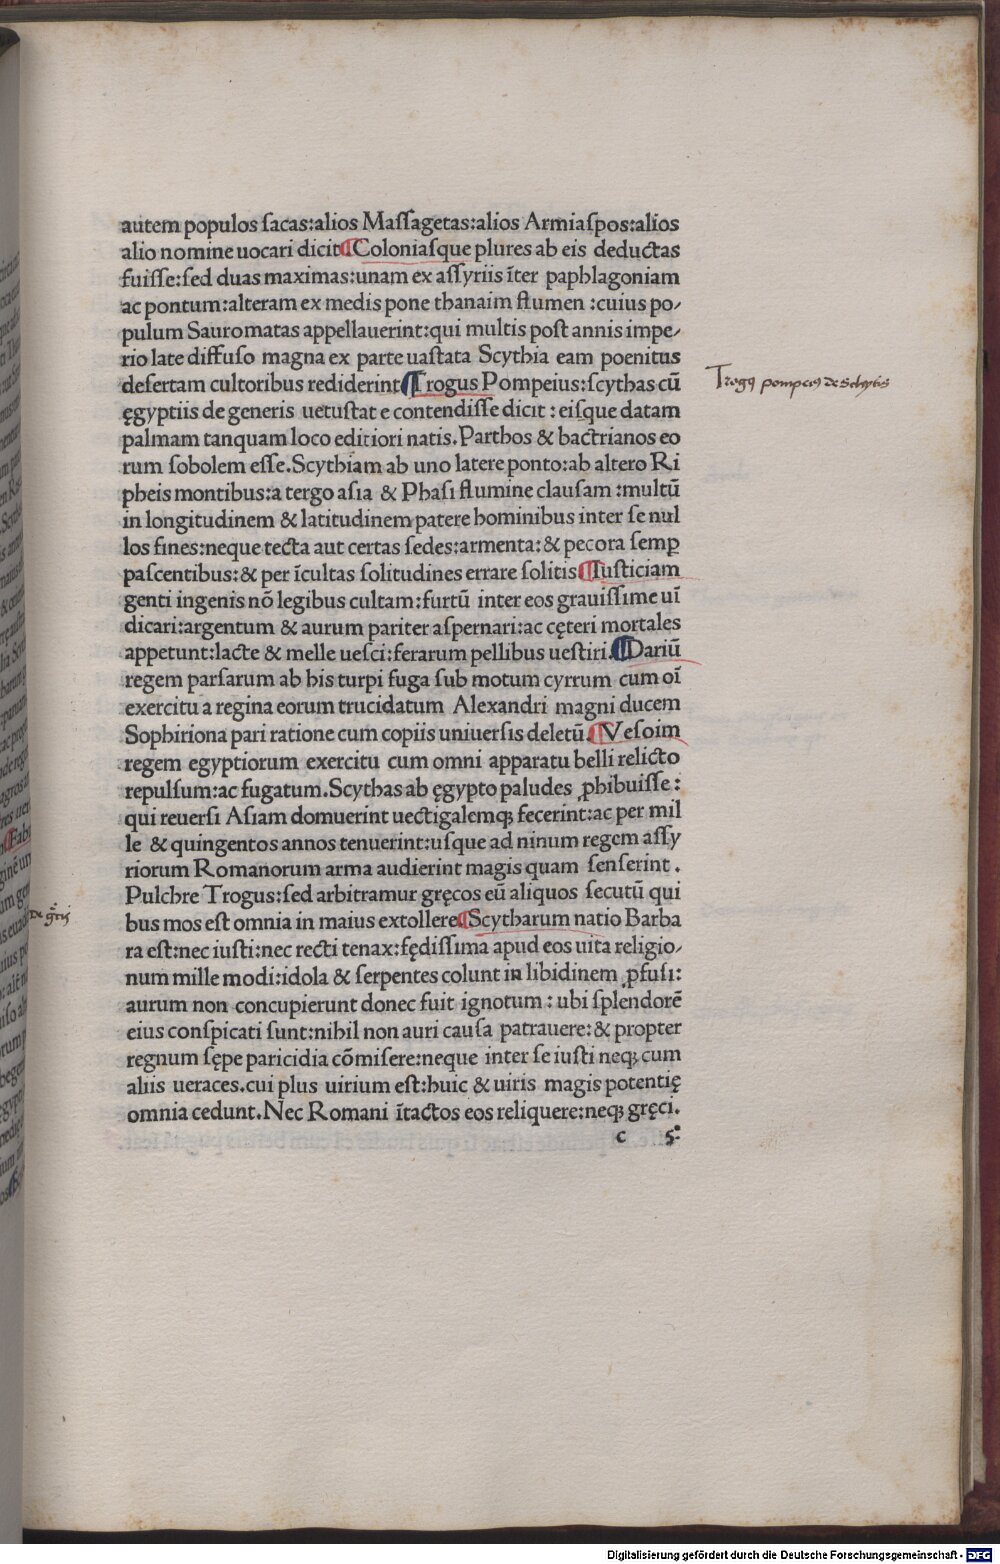 autem populos ſacas:alios Maſſagetas:alios Armiaſpos:alios
alio nomine uocari dicit ¶Coloniaſque plures ab eis deductas
fuiſſe:ſed duas maximas:unam ex aſſyriis īter paphlagoniam
ac pontum:alteram ex medis pone thanaim flumen :cuius po⸗
pulum Sauromatas appellauerint:qui multis poſt annis impe⸗
rio late diffuſo magna ex parte uaſtata Scythia eam poenitus
deſertam cultoribus rediderint ¶Trogus Pompeius:ſcythas cū
ęgyptiis de generis uetuſtat e contendiſſe dicit : eiſque datam
palmam tanquam loco editiori natis.Parthos & bactrianos eo
rum ſobolem eſſe.Scythiam ab uno latere ponto:ab altero Ri
pheis montibus:a tergo aſia & Phaſi flumine clauſam :multū
in longitudinem & latitudinem patere hominibus inter ſe nul
los fines:neque tecta aut certas ſedes:armenta:& pecora ſemꝑ
paſcentibus:& per īcultas ſolitudines errare ſolitis ¶Iuſticiam
genti ingenis nō legibus cultam:furtū inter eos grauiſſime uī
dicari:argentum & aurum pariter aſpernari:ac cęteri mortales
appetunt:lacte & melle ueſci:ferarum pellibus ueſtiri.¶Dariū
regem parſarum ab his turpi fuga ſub motum cyrrum cum oī
exercitu a regina eorum trucidatum Alexandri magni ducem
Sophiriona pari ratione cum copiis uniuerſis deletū.¶Veſoim
regem egyptiorum exercitu cum omni apparatu belli relicto
repulſum:ac fugatum.Scythas ab ęgypto paludes ꝓhibuiſſe :
qui reuerſi Aſiam domuerint uectigalemqꝫ fecerint:ac per mil
le & quingentos annos tenuerint:uſque ad ninum regem aſſy
riorum Romanorum arma audierint magis quam ſenſerint .
Pulchre Trogus:ſed arbitramur gręcos eū aliquos ſecutū qui
bus mos eſt omnia in maius extollere ¶Scytharum natio Barba
ra eſt:nec iuſti:nec recti tenax:fędiſſima apud eos uita religio⸗
num mille modi:idola & ſerpentes colunt in libidinem ꝓfuſi:
aurum non concupierunt donec fuit ignotum : ubi ſplendorē
eius conſpicati ſunt:nihil non auri cauſa patrauere:& propter
regnum ſępe paricidia cōmiſere:neque inter ſe iuſti neqꝫ cum
aliis ueraces.cui plus uirium eſt:huic & uiris magis potentię
omnia cedunt.Nec Romani ītactos eos reliquere:neqꝫ gręci.
c 5
Trogꝰ pompeiꝰ de Schytis
Digitalisierung gefördert durch die Deutsche Forschungsgemeinschaft - DFG